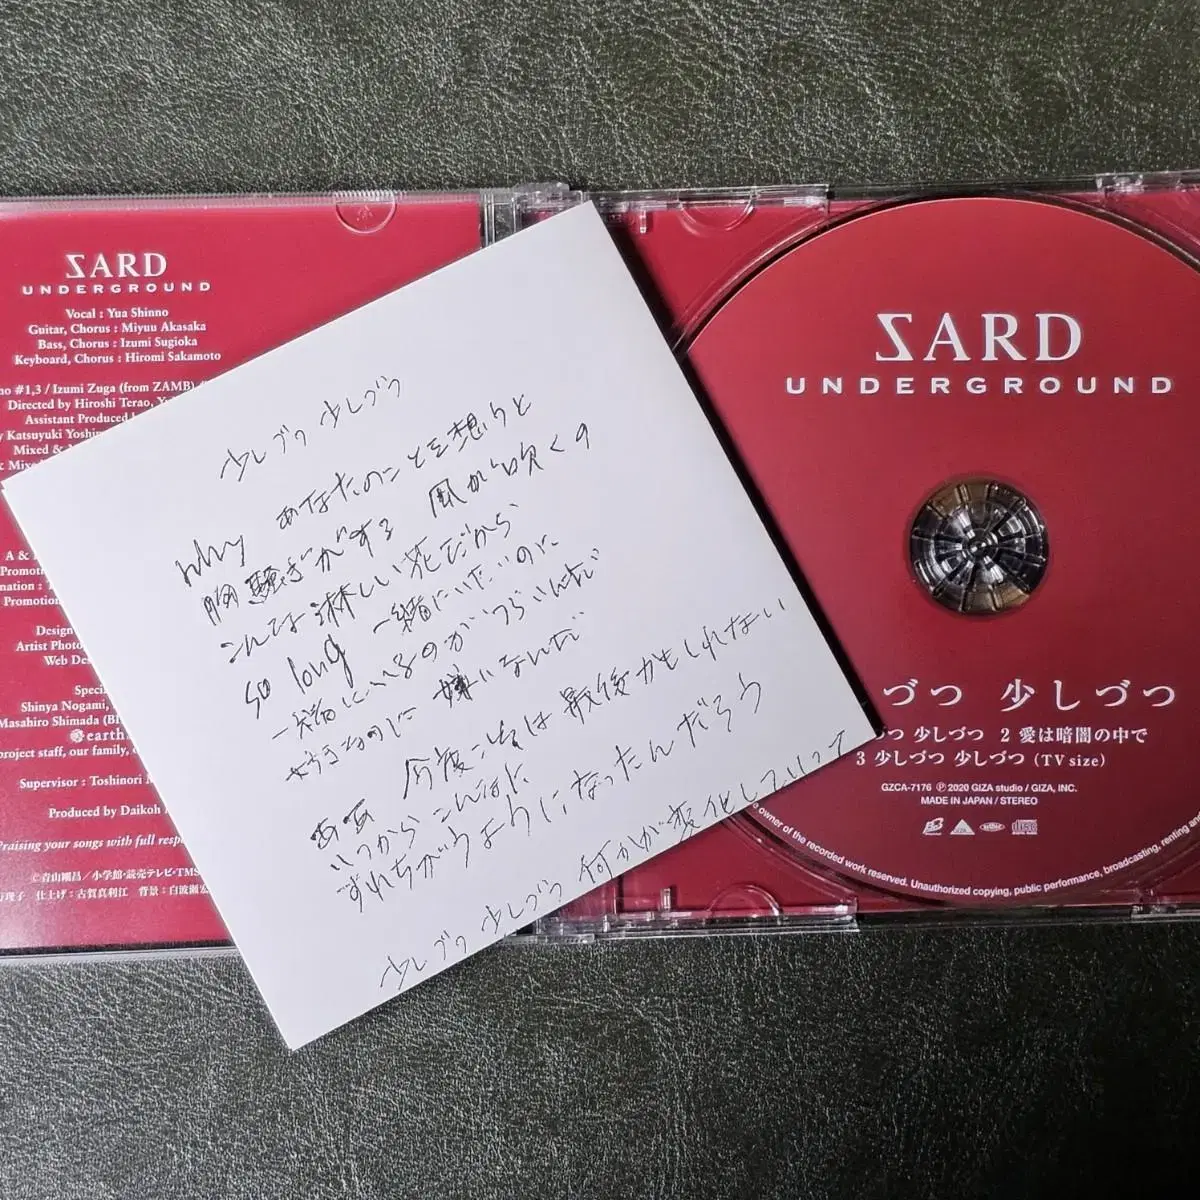 ZARD
UNDERGROUND
Vocal : Yua Shinno
Guitar, Chorus : Miyuu Akasaka
Bass, Chorus : Izumi Sugioka
Keyboard, Chorus : Hiromi Sakamoto
#1,3 / Izumi Zuga (from ZAMB)
Directed by Hiroshi Terao,
Assistant Produced
Katsuyuki
Mixed &
& Mix
A &
Promotion
Promotion
Design
Artist Photo
Web
Special
Shinya Nogami,
Masahiro Shimada
earth
project staff, our family,
Supervisor : Toshinori
Produced by Daikoh
Praising your songs with full
©青山剛昌／小学館・読売テレビ・TMS
仕上げ：古賀真利江 背景：
少しづつ 少しづつ
why あなたのことを想うと
胸騒ぎがする 風が吹くの
こんな淋しい花だから
so long 一緒にいたいのに
一緒にいるのがつらいんだ
好きなのに 嫌になるんだ
ああ 今度こそは 最後かもしれない
いつから こんなに
すれちがうようになったんだろう
少しづつ 少しづつ 何かが変化していって
ZARD
UNDERGROUND
づつ 少しづつ
づつ 少しづつ 2 愛は暗闇の中で
3 少しづつ 少しづつ (TV size)
GZCA-7176 Ⓟ 2020 GIZA studio / GIZA, INC.
MADE IN JAPAN / STEREO
owner of the recorded work reserved. Unauthorized copying, public performance, broadcasting, renting and